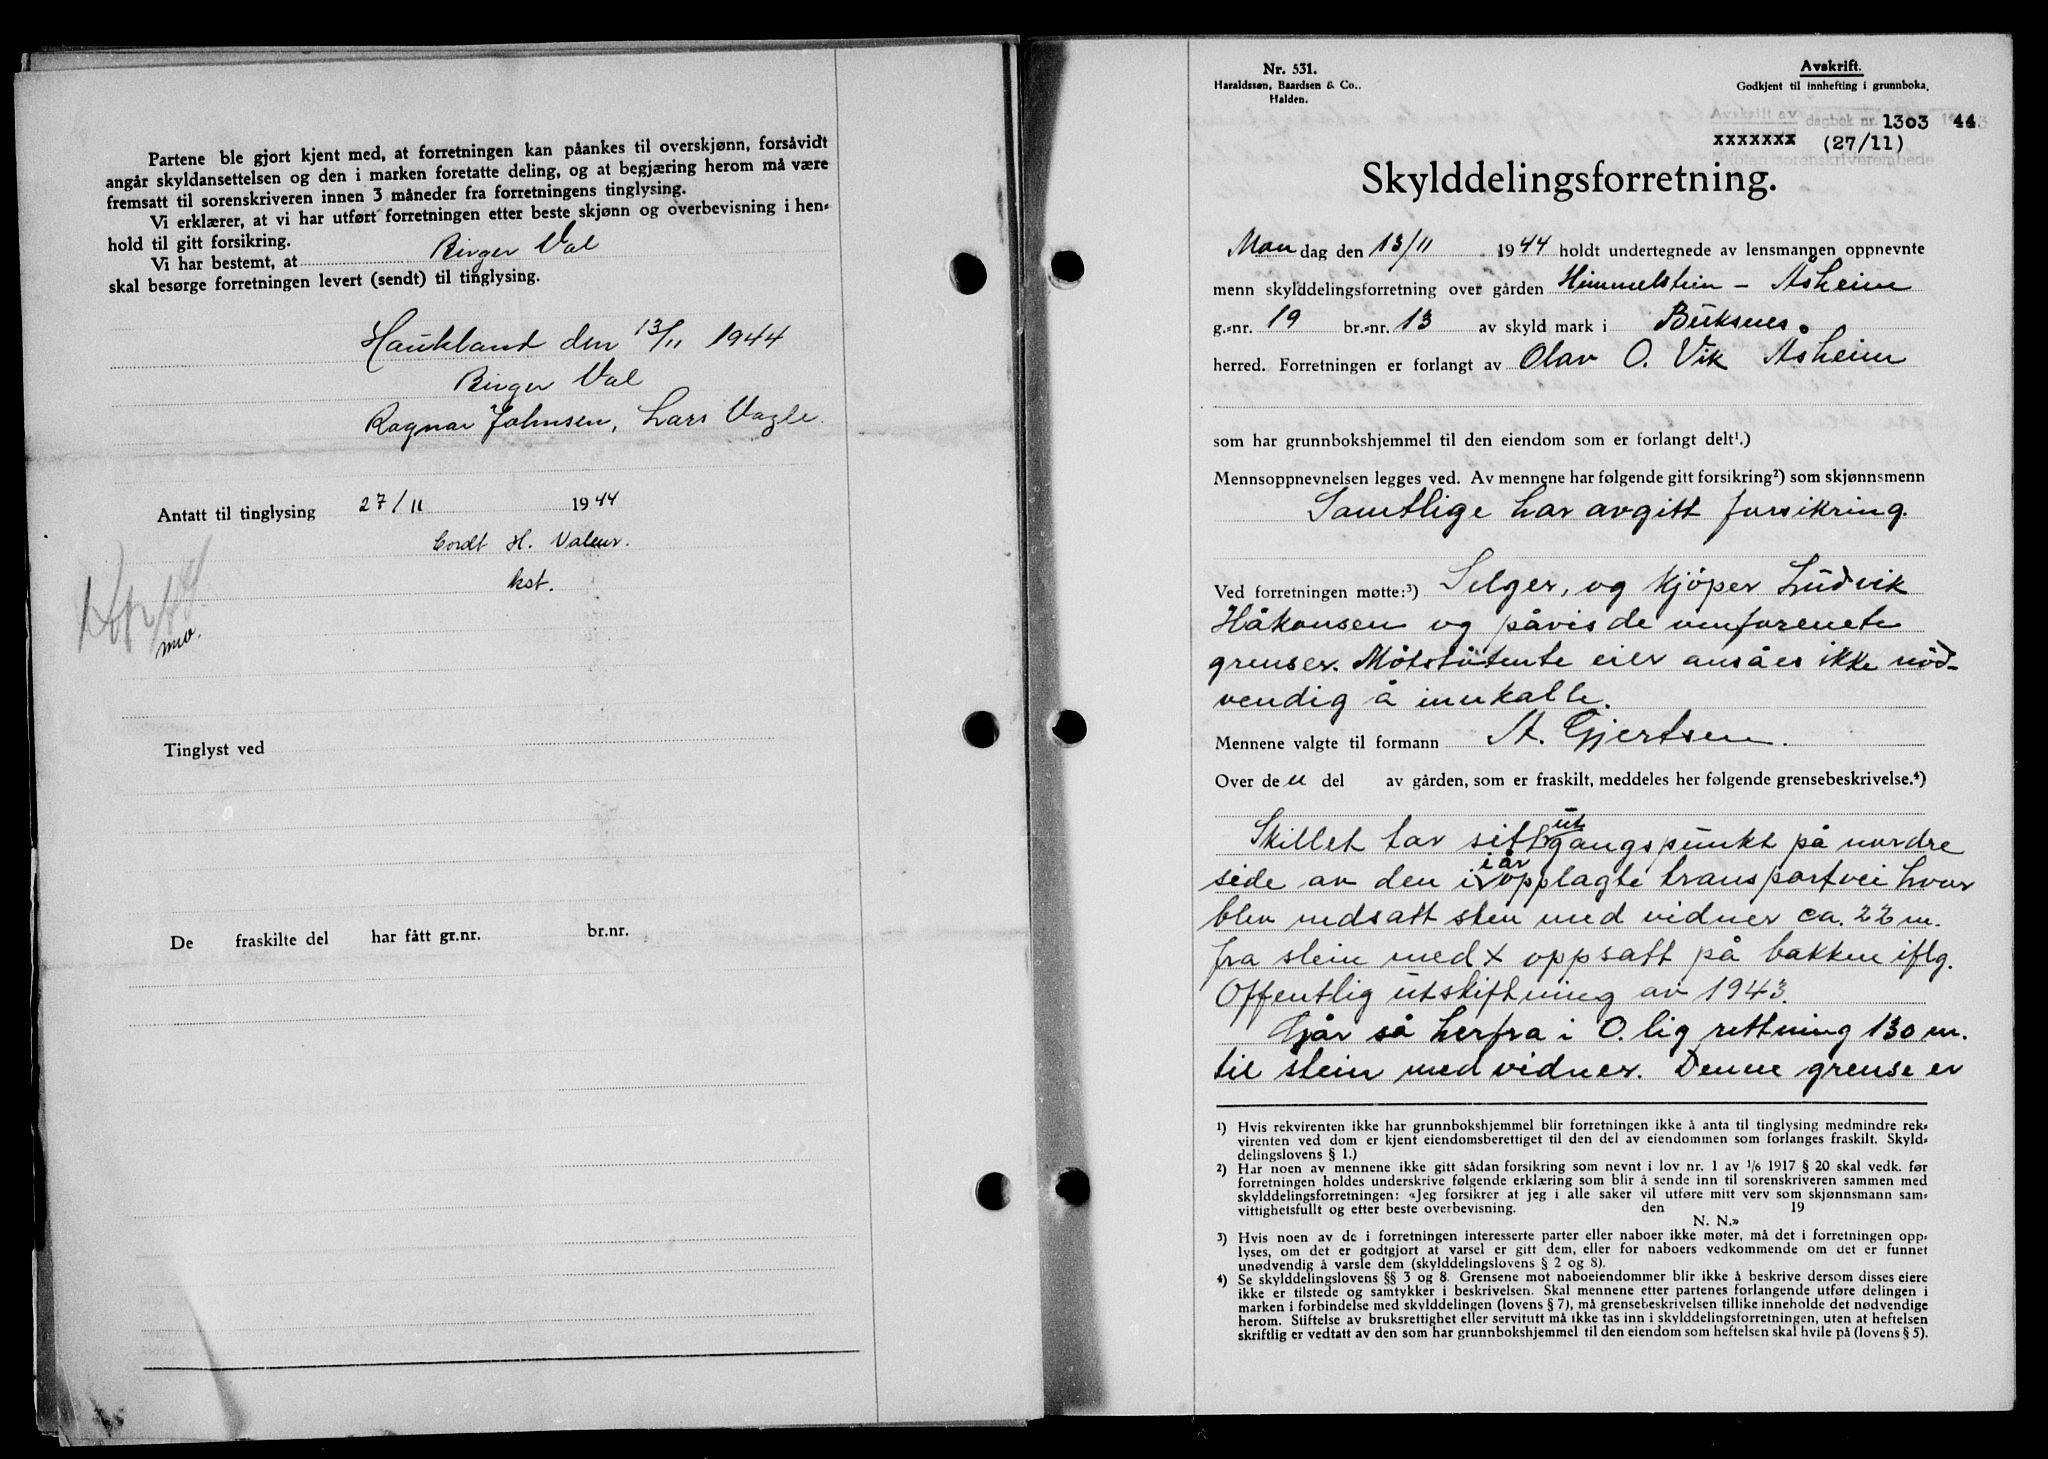 Partene ble gjort kjent med, at forretningen kan påankes til overskjønn, forsåvidt
angår skyldansettelsen og den i marken foretatte deling, og at begjæring herom må være
fremsatt til sorenskriveren innen 3 måneder fra forretningens tinglysing.
Vi erklærer, at vi har utført forretningen etter beste skjønn og overbevisning i hen=
hold til gitt forsikring.
Vi har bestemt, at Birger Val
skal besørge forretningen levert (sendt) til tinglysing.
Haukland den 13/11 1944
Birger Val
Ragnar Johnsen, Lars Vagle.
Antatt til tinglysing 27/11 1944
Cordt H. Valeur.
kst.
Tinglyst ved
De fraskilte del har fått gr.nr. br.nr.
Nr. 531.
Haraldssøn, Baardsen & Co..
Halden.
Avskrift.
Godkjent til innhefting i grunnboka.
Avskrift av dagbok nr. 1303 1944
xxxxxxx (27/11)
Skylddelingsforretning.
Mandag den 13/11 1944 holdt undertegnede av lensmannen oppnevnte
menn skylddelingsforretning over gården Himmelstein - Åsheim
g.=nr. 19 br.=nr. 13 av skyld mark i Buksnes
herred. Forretningen er forlangt av Olav O. Vik Åsheim
som har grunnbokshjemmel til den eiendom som er forlangt delt¹.)
Mennsoppnevnelsen legges ved. Av mennene har følgende gitt forsikring²) som skjønnsmenn
Samtlige har avgitt forsikring.
Ved forretningen møtte:³) Selger, og kjöper Ludvik
Håkonsen og påvis de omforenete
grenser. Motstötente eier ansåes ikke nöd-
vendig å innkalle.
Mennene valgte til formann A. Gjertsen.
Over den del av gården, som er fraskilt, meddeles her følgende grensebeskrivelse.⁴)
Skillet tar sitt utgangspunkt på nordre
side av den i år opplagte transportvei hvor
blev nedsatt sten med vidner ca. 22 m.
fra stein med x oppsatt på bakken iflg.
Offentlig utskiftning av 1943.
Går så herfra i O.lig rettning 130 m.
til stein med vidner. Denne grense er
1) Hvis rekvirenten ikke har grunnbokshjemmel blir forretningen ikke å anta til tinglysing medmindre rek=
virenten ved dom er kjent eiendomsberettiget til den del av eiendommen som forlanges fraskilt. Skyld=
delingslovens § 1.)
2) Har noen av mennene ikke gitt sådan forsikring som nevnt i lov nr. 1 av 1/6 1917 § 20 skal vedk. før
forretningen holdes underskrive følgende erklæring som blir å sende inn til sorenskriveren sammen med
skylddelingsforretningen: «Jeg forsikrer at jeg i alle saker vil utføre mitt verv som skjønnsmann sam=
vittighetsfullt og etter beste overbevisning. den 19
N. N.»
3) Hvis noen av de i forretningen interesserte parter eller naboer ikke møter, må det i forretningen opp=
lyses, om det er godtgjort at varsel er gitt dem, eller for naboers vedkommende om det er funnet
unødvendig å varsle dem (skylddelingslovens § 2 og 8).
4) Se skylddelingslovens §§ 3 og 8. Grensene mot naboeiendommer blir ikke å beskrive dersom disses eiere
ikke er tilstede og samtykker i beskrivelsen. Skal mennene etter partenes forlangende utføre delingen i
marken i forbindelse med skylddelingen (lovens § 7), må grensebeskrivelsen tillike inneholde det nødvendige
herom. Stiftelse av bruksrettighet eller servitutt må ikke tas inn i skylddelingsforretningen, uten at heftelsen
skriftlig er vedtatt av den som har grunnbokshjemmel til den eiendom som heftelsen skal hvile på (lovens § 5).